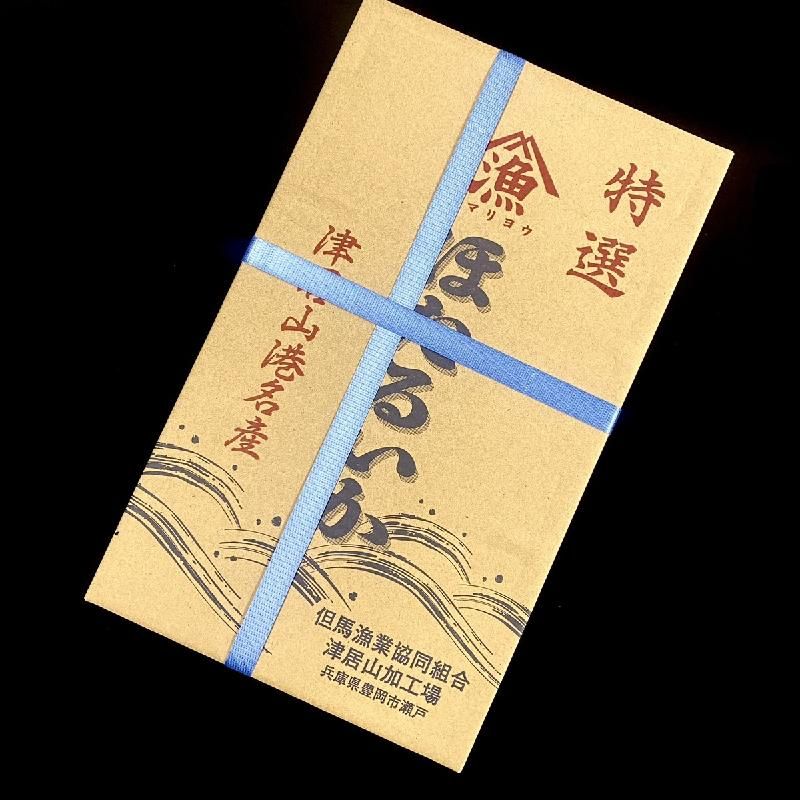 特選
漁
マリヨウ
ほたるいか
津居山港名産
但馬漁業協同組合
津居山加工場
兵庫県豊岡市瀬戸